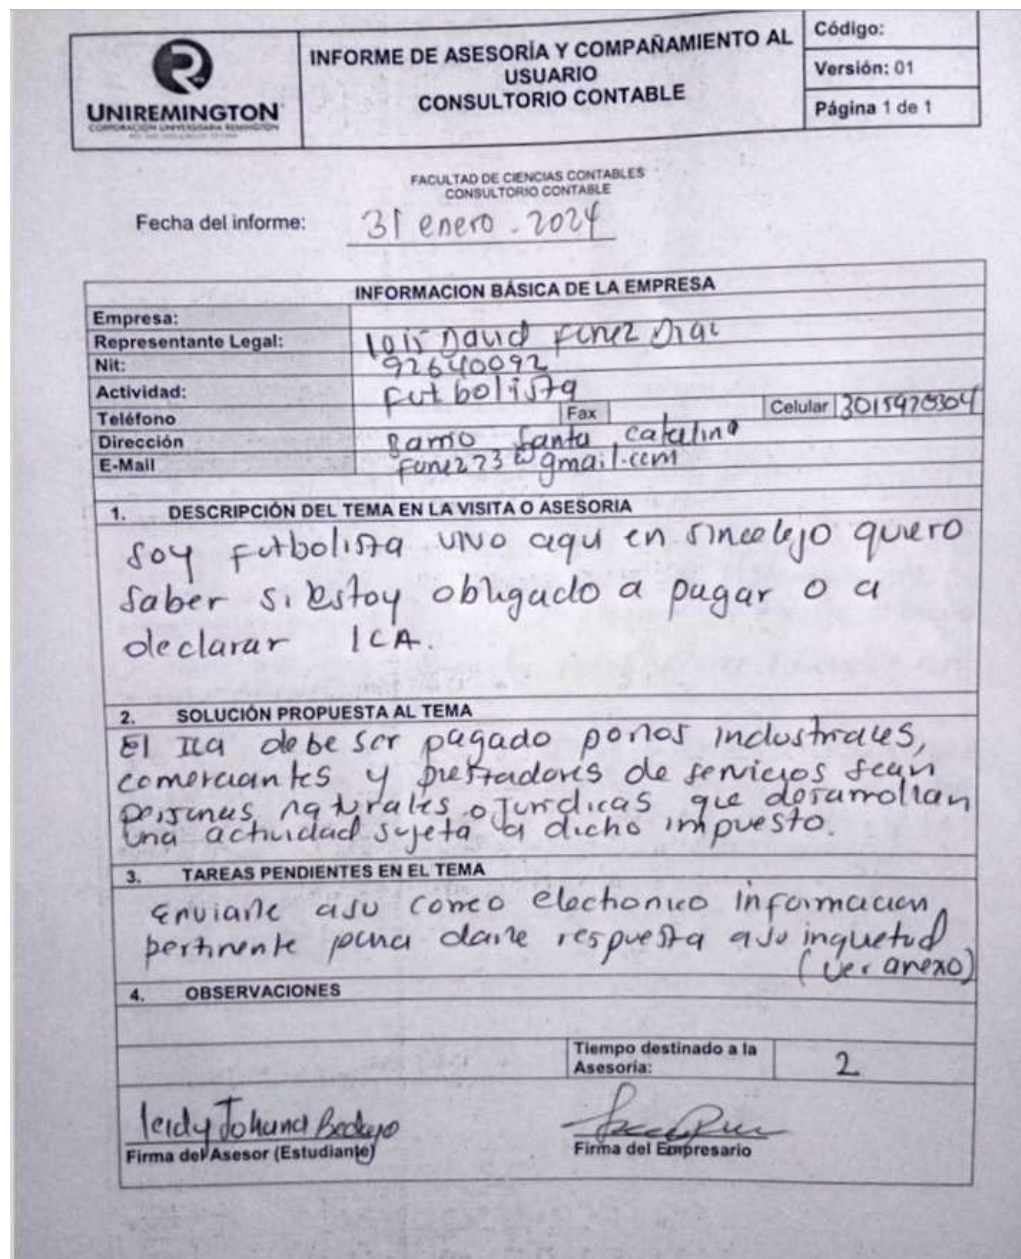 UNIREMINGTON
CORPORACIÓN UNIVERSITARIA REMINGTON
INFORME DE ASESORÍA Y COMPAÑAMIENTO AL
USUARIO
CONSULTORIO CONTABLE
Código:
Versión: 01
Página 1 de 1
FACULTAD DE CIENCIAS CONTABLES
CONSULTORIO CONTABLE
Fecha del informe: 31 enero - 2024
INFORMACION BÁSICA DE LA EMPRESA
Empresa:
Representante Legal: David Funez
Nit: 92640092
Actividad: Futbolista
Teléfono Fax Celular
Dirección Barrio Santa Catalina
E-Mail Funez73@gmail.com
1. DESCRIPCIÓN DEL TEMA EN LA VISITA O ASESORIA
Soy Futbolista vivo aqui en sincelejo quiero
saber si estoy obligado a pagar o a
declarar ICA.
2. SOLUCIÓN PROPUESTA AL TEMA
El ICA debe ser pagado por los industriales,
comerciantes y prestadores de servicios sean
personas naturales o Juridicas que desarrollan
una actividad sujeta a dicho impuesto.
3. TAREAS PENDIENTES EN EL TEMA
Enviarle a su correo electronico informacion
pertinente para darle respuesta a su inquetud
(ver anexo)
4. OBSERVACIONES
Tiempo destinado a la
Asesoría: 2
leidy Johana Bedoya
Firma del Asesor (Estudiante)
Firma del Empresario